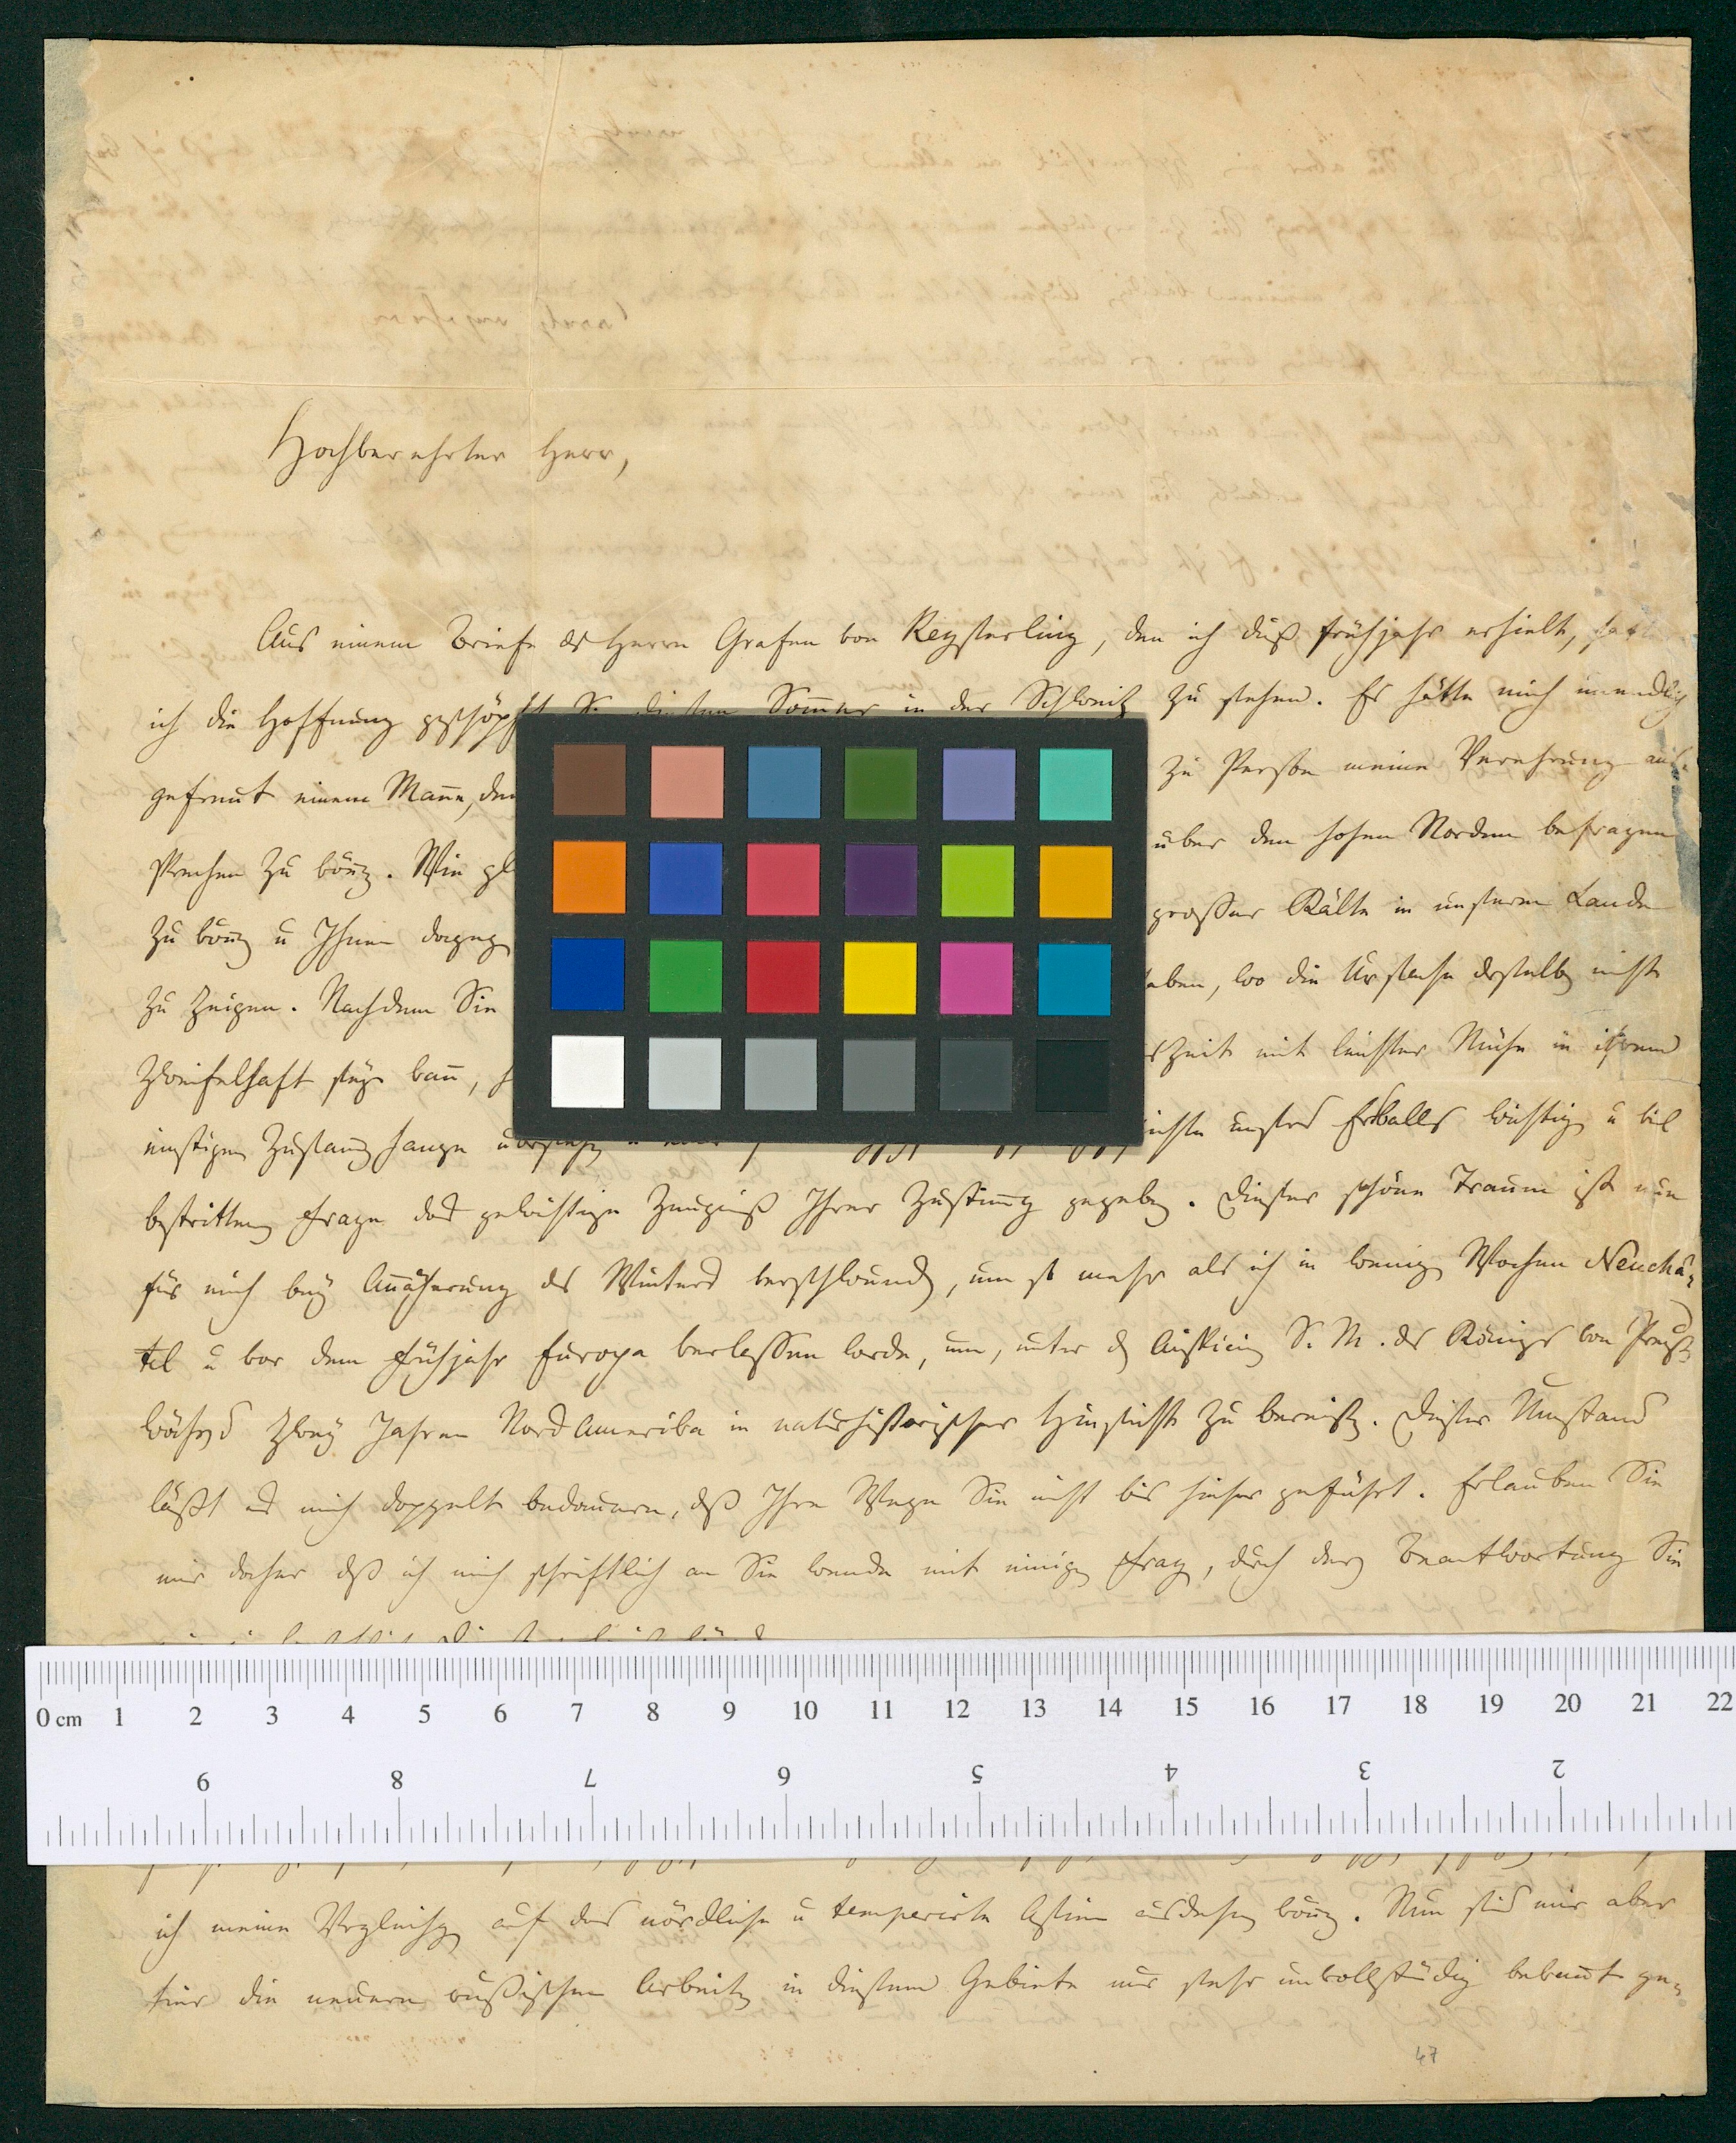 Hochverehrter Herr,
Aus einem Briefe des Herrn Grafen von Keyserling, den ich dieß Frühjahr erhielt, hatte
ich die Hoffnung geschöpft Sie diesen Sommer in der Schweitz zu sehen. Es hätte mich unendlich
gefreut einem Mann, den zu Person meine Verehrung aus-
sprechen zu könn. Wie gl über den hohen Norden befragen
zu könn u Ihnen dageg grosser Kälte in unserem Lande
zu zeigen. Nachdem Sie haben, wo die Ursache derselb nicht
zweifelhaft seyn kann, h szeit mit leichter Mühe in ihrem
einstigen Zustand
 unsers Erdballs wichtige u viel
bestritten Frage das gewichtige Zeugniß Ihrer Zustimmg gegeben. Dieser schöne Traum ist nun
für mich bey Annäherung des Winters verschwunden, um so mehr als ich in wenig Wochen Neuchâ-
tel u vor dem Frühjahr Europa verlassen werde, um, unter d Auspicien S. M. des Königs von Preuß
während zwey Jahren Nord Amerika in naturhistorischer Hinsicht zu bereisen. Dieser Umstand
läßt es mich doppelt bedauern, dß Ihre Wege Sie nicht bis hieher geführt. Erlauben Sie
mir daher dß ich mich schriftlich an Sie wende mit einigen Fragen, durch deren Beantwortung Sie
ich meine Vergleichg auf das nördliche u temperirte Asien ausdehnen könn. Nun sind mir aber
hier die neuern rußischen Arbeiten in diesem Gebiete nur sehr unvollständig bekannt ge-
47
0 cm 1 2 3 4 5 6 7 8 9 10 11 12 13 14 15 16 17 18 19 20 21 22
9 8 7 6 5 4 3 2